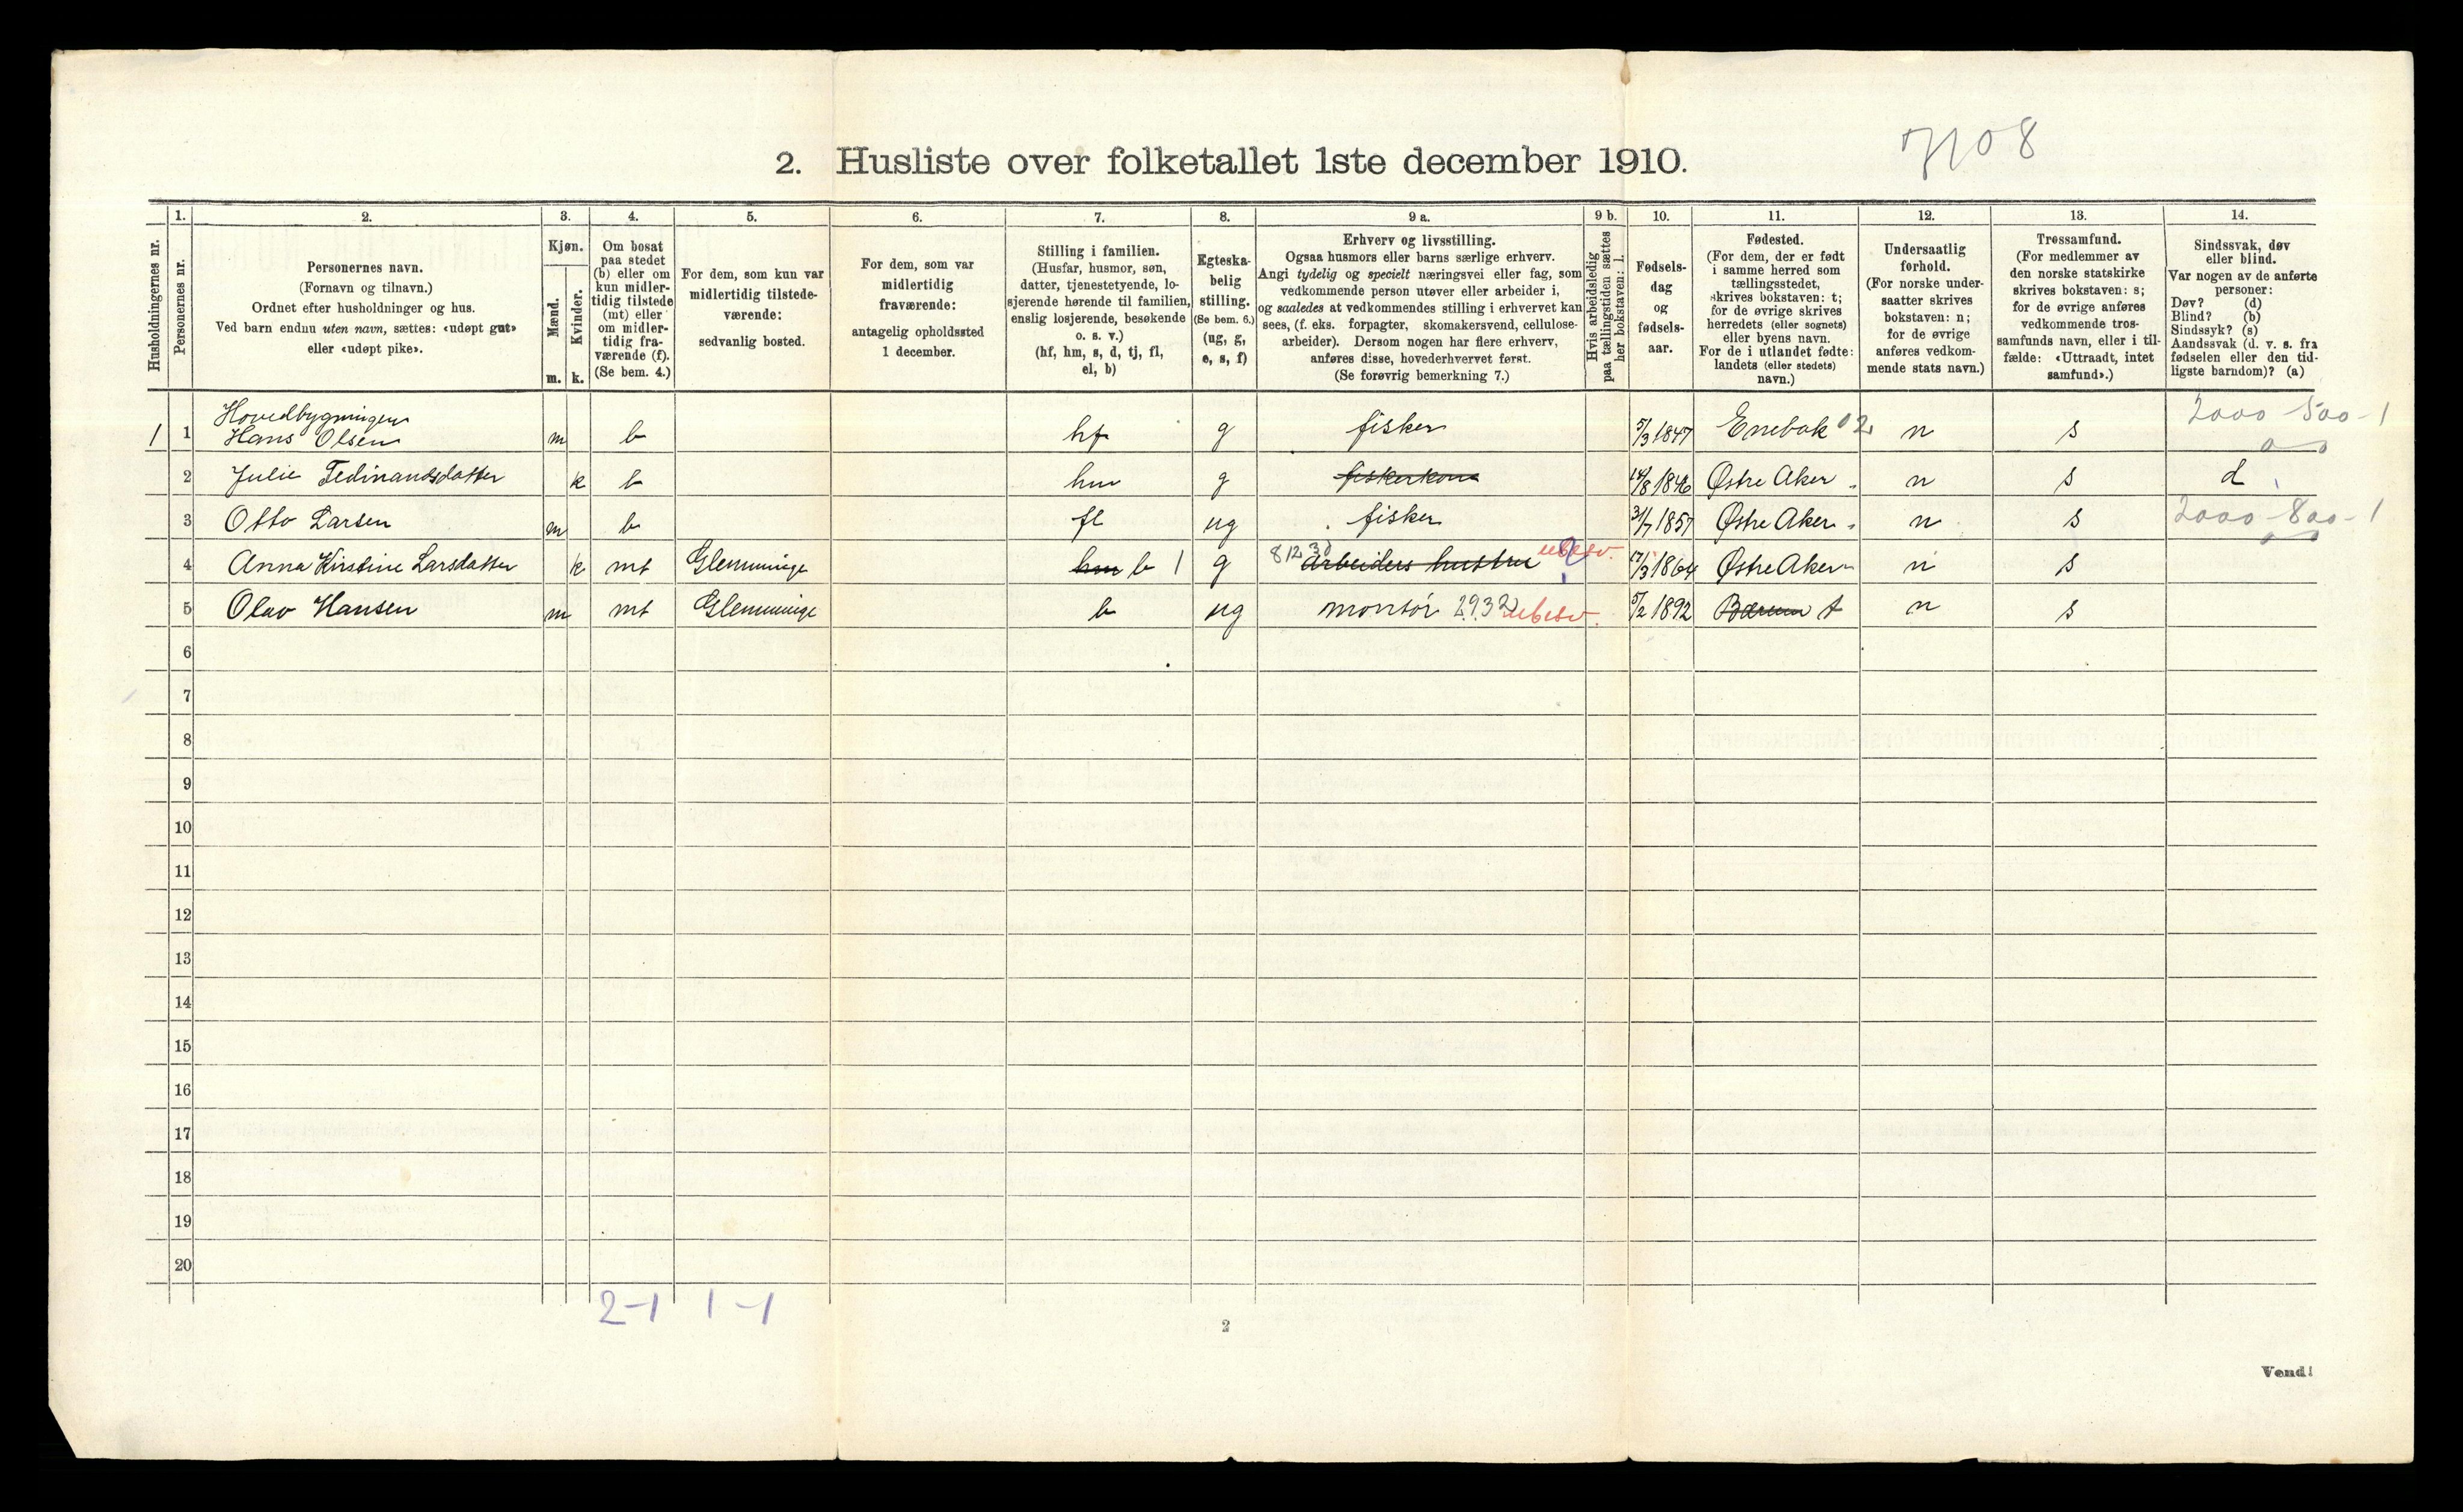 7108
2. Husliste over folketallet 1ste december 1910.
1. 2. 3. 4. 5. 6. 7. 8. 9 a. 9 b. 10. 11. 12. 13. 14.
Husholdningernes nr.
Personernes nr.
Personernes navn.
(Fornavn og tilnavn.)
Ordnet efter husholdninger og hus.
Ved barn endnu uten navn, sættes: «udøpt gut»
eller «udøpt pike».
Kjøn.
Mænd.
Kvinder.
m. k.
Om bosat
paa stedet
(b) eller om
kun midler-
tidig tilstede
(mt) eller
om midler-
tidig fra-
værende (f).
(Se bem. 4.)
For dem, som kun var
midlertidig tilstede-
værende:
sedvanlig bosted.
For dem, som var
midlertidig
fraværende:
antagelig opholdssted
1 december.
Stilling i familien.
(Husfar, husmor, søn,
datter, tjenestetyende, lo-
sjerende hørende til familien,
enslig losjerende, besøkende
o. s. v.)
(hf, hm, s, d, tj, fl,
el, b)
Egteska-
belig
stilling.
(Se bem. 6.)
(ug, g,
e, s, f)
Erhverv og livsstilling.
Ogsaa husmors eller barns særlige erhverv.
Angi tydelig og specielt næringsvei eller fag, som
vedkommende person utøver eller arbeider i,
og saaledes at vedkommendes stilling i erhvervet kan
sees, (f. eks. forpagter, skomakersvend, cellulose-
arbeider). Dersom nogen har flere erhverv,
anføres disse, hovederhvervet først.
(Se forøvrig bemerkning 7.)
Hvis arbeidsledig
paa tællingstiden sættes
her bokstaven: l.
Fødsels-
dag
og
fødsels-
aar.
Fødested.
(For dem, der er født
i samme herred som
tællingsstedet,
skrives bokstaven: t;
for de øvrige skrives
herredets (eller sognets)
eller byens navn.
For de i utlandet fødte:
landets (eller stedets)
navn.)
Undersaatlig
forhold.
(For norske under-
saatter skrives
bokstaven: n;
for de øvrige
anføres vedkom-
mende stats navn.)
Trossamfund.
(For medlemmer av
den norske statskirke
skrives bokstaven: s;
for de øvrige anføres
vedkommende tros-
samfunds navn, eller i til-
fælde: «Uttraadt, intet
samfund».)
Sindssvak, døv
eller blind.
Var nogen av de anførte
personer:
Døv? (d)
Blind? (b)
Sindssyk? (s)
Aandssvak (d. v. s. fra
fødselen eller den tid-
ligste barndom)? (a)
Hovedbygningen
1 1 Hans Olsen m b hf g fisker 5/3 1847 Enebak 02 n s 2000-500-1
2 Julie Fedinandsdatter k b hm g fiskerkone 14/8 1846 Østre Aker n s d
3 Otto Larsen m b fl ug fisker 31/7 1857 Østre Aker n s 2000-800-1
4 Anna Kirstine Larsdatter k mt Glemminge hm b 1 g 812 30 Arbeiders hustru ubesv. 17/3 1864 Østre Aker n s
5 Olav Hansen m mt Glemminge b ug montör 2932 ubesv. 5/2 1892 Bærum t n s
6
7
8
9
10
11
12
13
14
15
16
17
18
19
20
2-1 1-1
2
Vend!